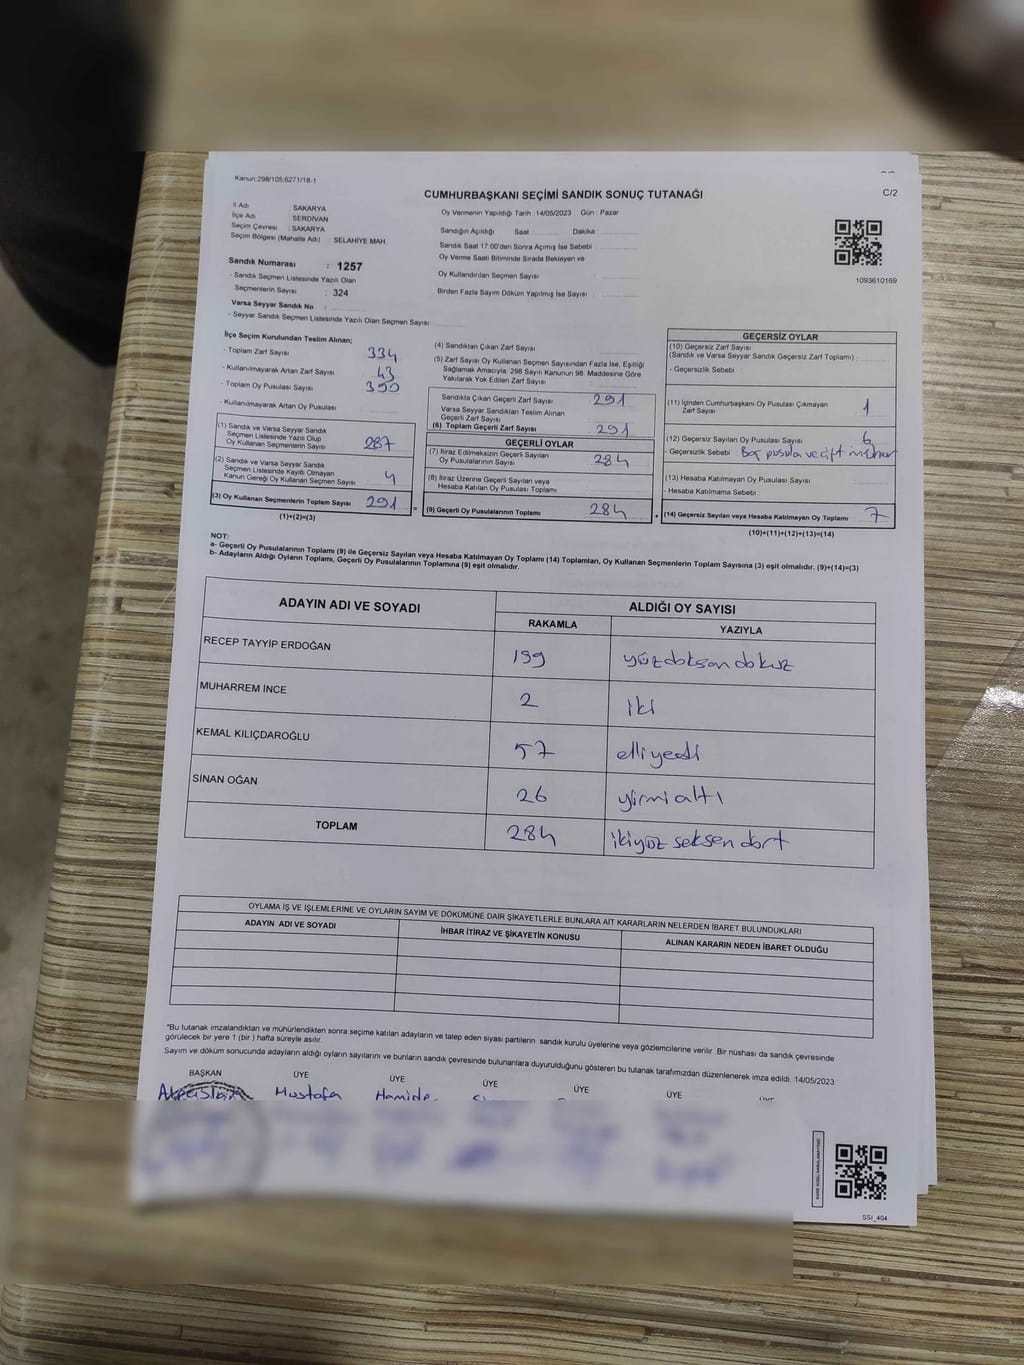 Kanun:298/105,6271/18-1
CUMHURBAŞKANI SEÇİMİ SANDIK SONUÇ TUTANAĞI
C/2
İl Adı : SAKARYA
İlçe Adı : SERDİVAN
Seçim Çevresi : SAKARYA
Seçim Bölgesi (Mahalle Adı) : SELAHİYE MAH.
Oy Vermenin Yapıldığı Tarih :14/05/2023 Gün : Pazar
Sandığın Açıldığı Saat Dakika
Sandık Saat 17:00'den Sonra Açılmış İse Sebebi
Oy Verme Saati Bitiminde Sırada Bekleyen ve
Oy Kullandırılan Seçmen Sayısı
Birden Fazla Sayım Döküm Yapılmış İse Sayısı
1093610169
Sandık Numarası : 1257
- Sandık Seçmen Listesinde Yazılı Olan
Seçmenlerin Sayısı : 324
Varsa Seyyar Sandık No :
- Seyyar Sandık Seçmen Listesinde Yazılı Olan Seçmen Sayısı
İlçe Seçim Kurulundan Teslim Alınan;
- Toplam Zarf Sayısı 334
- Kullanılmayarak Artan Zarf Sayısı 43
- Toplam Oy Pusulası Sayısı 390
- Kullanılmayarak Artan Oy Pusulası
(1) Sandık ve Varsa Seyyar Sandık
Seçmen Listesinde Yazılı Olup
Oy Kullanan Seçmenlerin Sayısı 287
(2) Sandık ve Varsa Seyyar Sandık
Seçmen Listesinde Kayıtlı Olmayan
Kanun Gereği Oy Kullanan Seçmen Sayısı 4
(3) Oy Kullanan Seçmenlerin Toplam Sayısı 291
(1)+(2)=(3)
(4) Sandıktan Çıkan Zarf Sayısı
(5) Zarf Sayısı Oy Kullanan Seçmen Sayısından Fazla İse, Eşitliği
Sağlamak Amacıyla, 298 Sayılı Kanunun 98. Maddesine Göre
Yakılarak Yok Edilen Zarf Sayısı
Sandıkta Çıkan Geçerli Zarf Sayısı 291
Varsa Seyyar Sandıktan Teslim Alınan
Geçerli Zarf Sayısı
(6) Toplam Geçerli Zarf Sayısı 291
GEÇERLİ OYLAR
(7) İtiraz Edilmeksizin Geçerli Sayılan
Oy Pusulalarının Sayısı 284
(8) İtiraz Üzerine Geçerli Sayılan veya
Hesaba Katılan Oy Pusulası Toplamı
(9) Geçerli Oy Pusulalarının Toplamı 284
GEÇERSİZ OYLAR
(10) Geçersiz Zarf Sayısı
(Sandık ve Varsa Seyyar Sandık Geçersiz Zarf Toplamı)
- Geçersizlik Sebebi :
(11) İçinden Cumhurbaşkanı Oy Pusulası Çıkmayan
Zarf Sayısı 1
(12) Geçersiz Sayılan Oy Pusulası Sayısı 6
- Geçersizlik Sebebi Boş pusula ve çift mühür
(13) Hesaba Katılmayan Oy Pusulası Sayısı
- Hesaba Katılmama Sebebi :
(14) Geçersiz Sayılan veya Hesaba Katılmayan Oy Toplamı 7
(10)+(11)+(12)+(13)=(14)
NOT:
a- Geçerli Oy Pusulalarının Toplamı (9) ile Geçersiz Sayılan veya Hesaba Katılmayan Oy Toplamı (14) Toplamları, Oy Kullanan Seçmenlerin Toplam Sayısına (3) eşit olmalıdır. (9)+(14)=(3)
b- Adayların Aldığı Oyların Toplamı, Geçerli Oy Pusulalarının Toplamına (9) eşit olmalıdır.
ADAYIN ADI VE SOYADI
ALDIĞI OY SAYISI
RAKAMLA YAZIYLA
RECEP TAYYİP ERDOĞAN 199 yüzdoksandokuz
MUHARREM İNCE 2 iki
KEMAL KILIÇDAROĞLU 57 elliyedi
SİNAN OĞAN 26 yirmialtı
TOPLAM 284 ikiyüz seksen dört
OYLAMA İŞ VE İŞLEMLERİNE VE OYLARIN SAYIM VE DÖKÜMÜNE DAİR ŞİKAYETLERLE BUNLARA AİT KARARLARIN NELERDEN İBARET BULUNDUKLARI
ADAYIN ADI VE SOYADI İHBAR İTİRAZ VE ŞİKAYETİN KONUSU ALINAN KARARIN NEDEN İBARET OLDUĞU
*Bu tutanak imzalandıktan ve mühürlendikten sonra seçime katılan adayların ve talep eden siyasi partilerin sandık kurulu üyelerine veya gözlemcilerine verilir. Bir nüshası da sandık çevresinde
görülecek bir yere 1 (bir ) hafta süreyle asılır.
Sayım ve döküm sonucunda adayların aldığı oyların sayılarını ve bunların sandık çevresinde bulunanlara duyurulduğunu gösteren bu tutanak tarafımızdan düzenlenerek imza edildi. 14/05/2023
BAŞKAN ÜYE ÜYE ÜYE ÜYE ÜYE
Alpaslan Mustafa Hamide
SSI_404